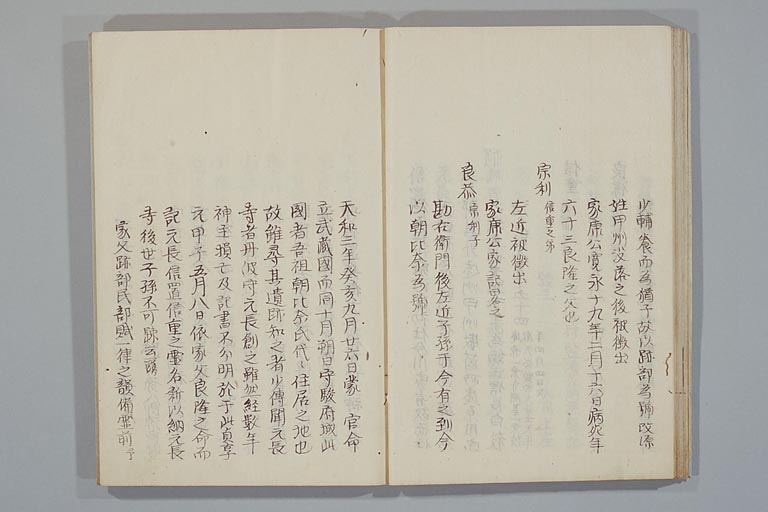 少輔養而為猶子故以跡部為号改源
姓甲州没落之後被徴出
家康公寛永十九年二月十六日病死年
六十三良隆之父也
宗利
信重之弟
左近被徴出
家康公家譜畧之
良恭
宗利子
勘右衛門後左近子孫于今有之到今
以朝比奈為号
天和三年癸亥九月廿六日蒙 官命
立武蔵國而同十月朝日守駿府城此
國者吾祖朝比奈氏代々住居之地也
故雖尋其遺跡知之者少傳聞元長
寺者丹波守元長創之雖然経数年
神主損亡及記書不分明於于此貞享
元甲子五月八日依家父良隆之命而
記元長信置信重之霊名新以納元長
寺後世子孫不可疎云爾
家父跡部民部賦一律之韻備霊前予